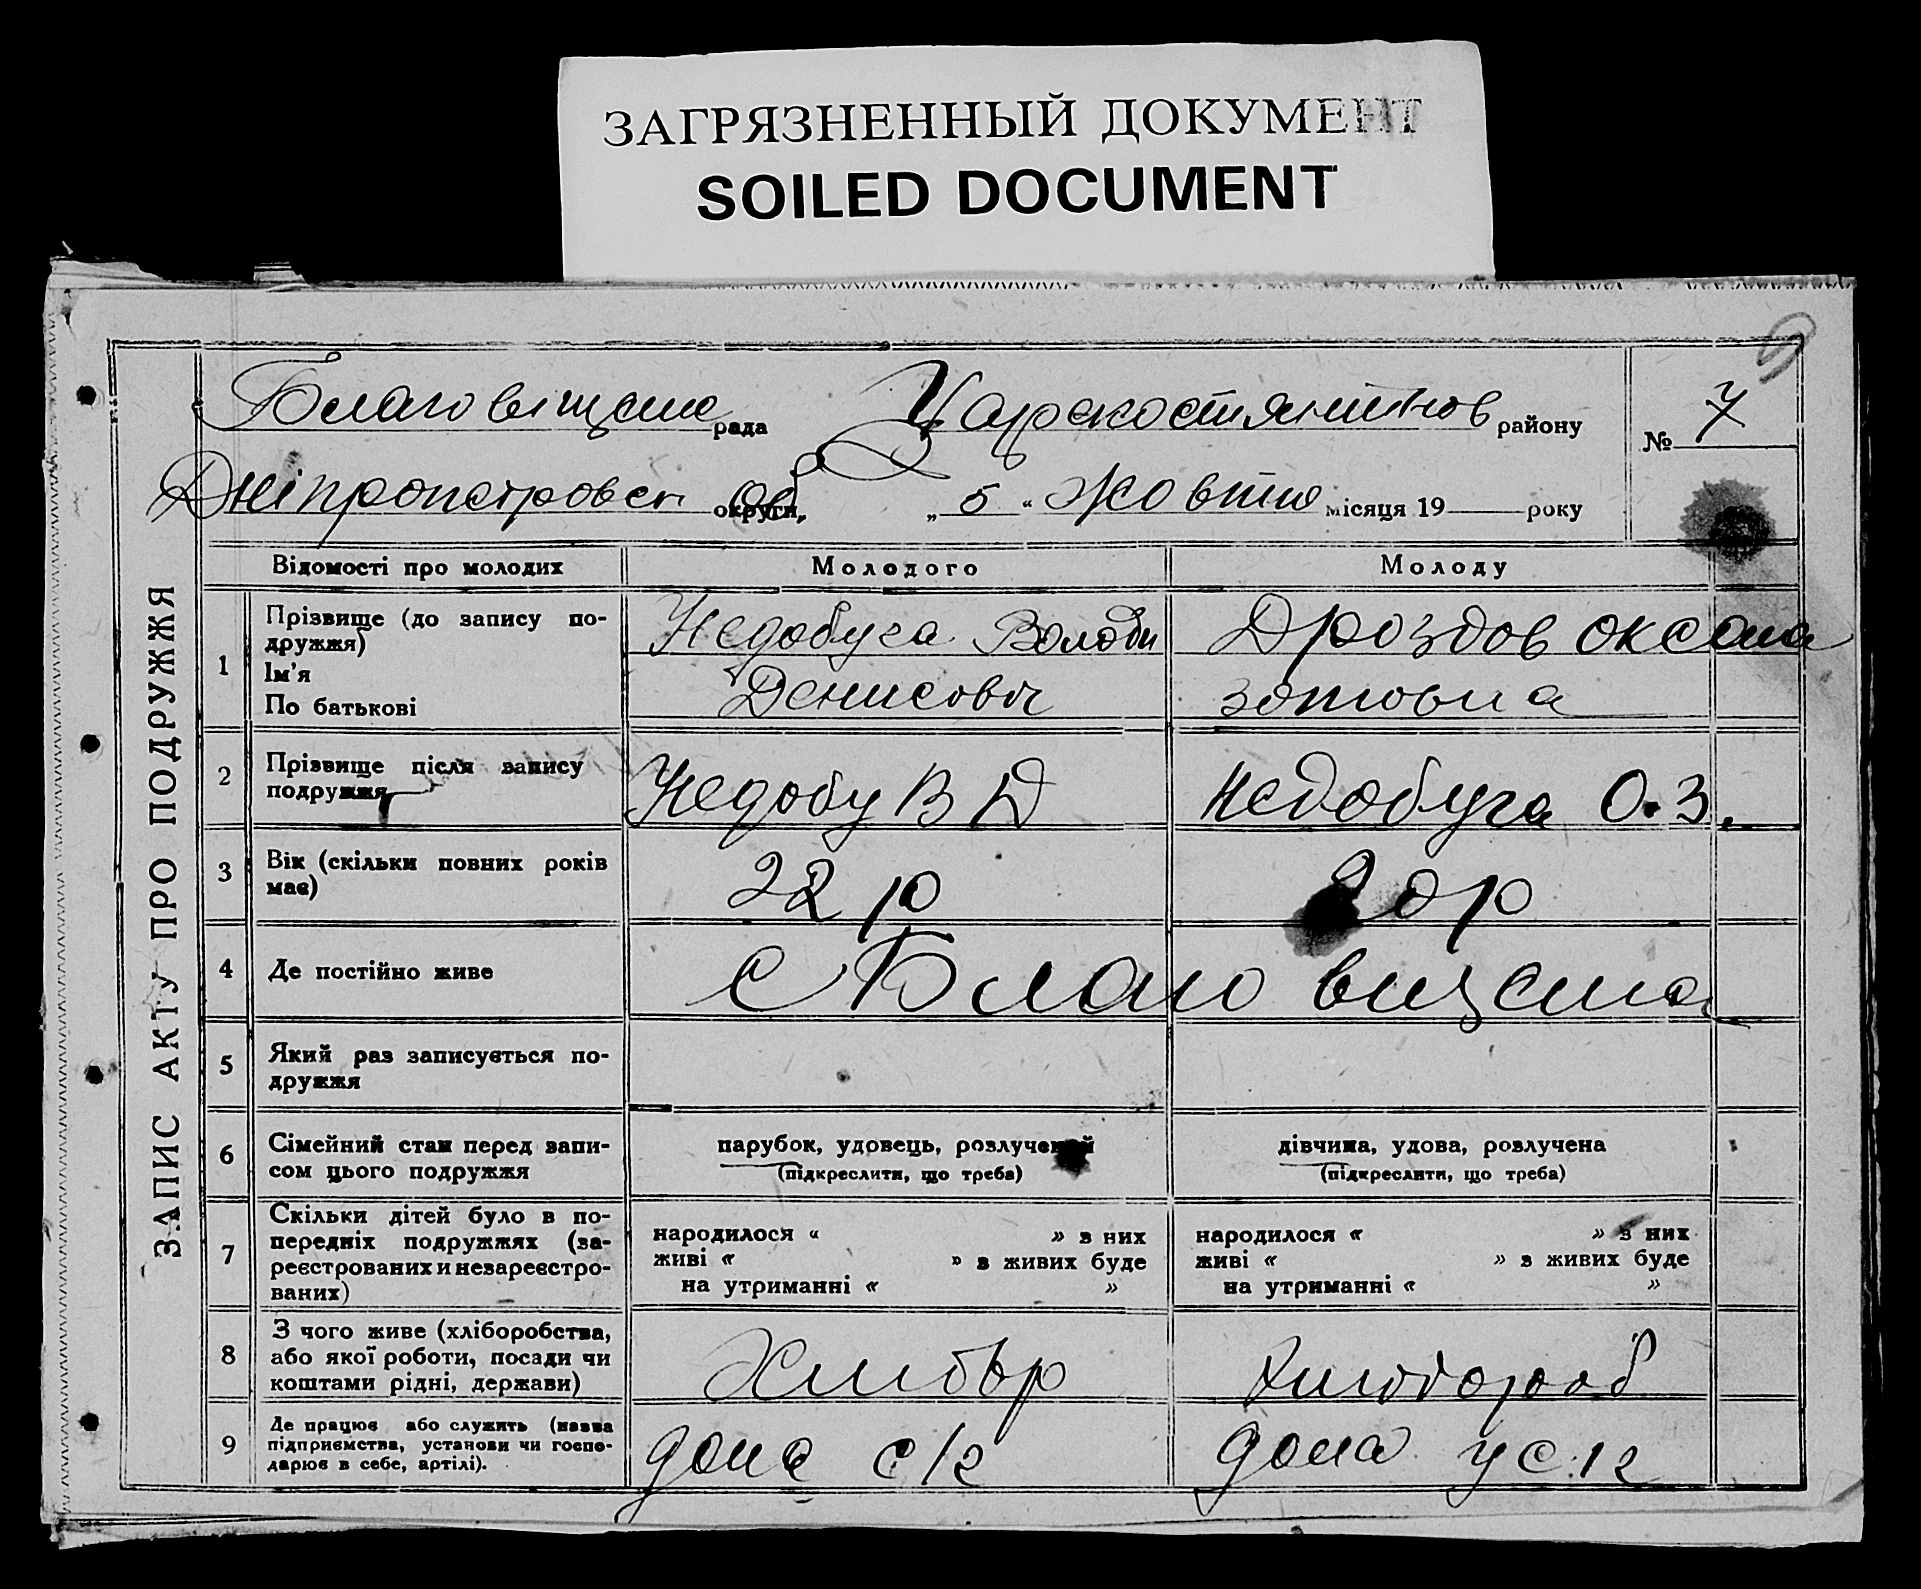 ЗАГРЯЗНЕННЫЙ ДОКУМЕНТ
SOILED DOCUMENT
ЗАПИС АКТУ ПРО ПОДРУЖЖЯ
Благовіщене рада Царекостянтинов району № 7
Дніпропетровск округи, Об „ 5 “ Жовтня місяця 19 року
Відомості про молодих Молодого Молоду
1 Прізвище (до запису по-
дружжя)
Ім’я
По батькові
Недобуга Володи
Денисович
Дроздов оксана
зотовна
2 Прізвище після запису
подружжя
Недобу В Д
Недобуга О.З.
3 Вік (скільки повних років
має)
22 р
20 р
4 Де постійно живе
с Благовищена
5 Який раз записується по-
дружжя
6 Сімейний стан перед запи-
сом цього подружжя
парубок, удовець, розлучений
(підкреслити, що треба)
дівчина, удова, розлучена
(підкреслити, що треба)
7 Скільки дітей було в по-
передніх подружжях (за-
реєстрованих и незареєстро-
ваних)
народилося “ » з них
живі “ » з живих буде
на утриманні “ »
народилося “ » з них
живі “ » з живих буде
на утриманні “ »
8 З чого живе (хліборобства,
або якої роботи, посади чи
коштами рідні, держави)
Хлибор
Хлибороб
9 Де працює або служить (назва
підприємства, установи чи госпо-
дарює в себе, артілі).
дома с/г
дома у с.г